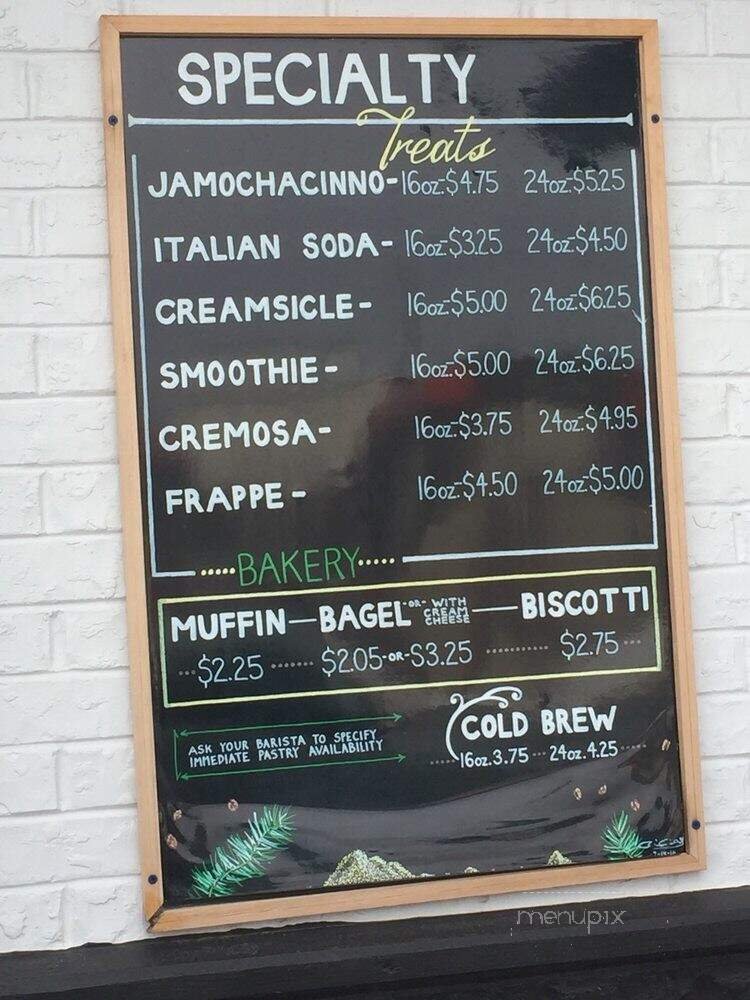 SPECIALTY
Treats
JAMOCHACINNO-16oz-$4.75 24oz-$5.25
ITALIAN SODA- 16oz-$3.25 24oz-$4.50
CREAMSICLE- 16oz-$5.00 24oz-$6.25
SMOOTHIE- 16oz-$5.00 24oz-$6.25
CREMOSA- 16oz-$3.75 24oz-$4.95
FRAPPE- 16oz-$4.50 24oz-$5.00
.....BAKERY.....
MUFFIN—BAGEL -OR- WITH CREAM CHEESE —BISCOTTI
...$2.25...... $2.05-OR-$3.25 ........... $2.75...
COLD BREW
16oz.3.75 ... 24oz.4.25
ASK YOUR BARISTA TO SPECIFY
IMMEDIATE PASTRY AVAILABILITY
menupix